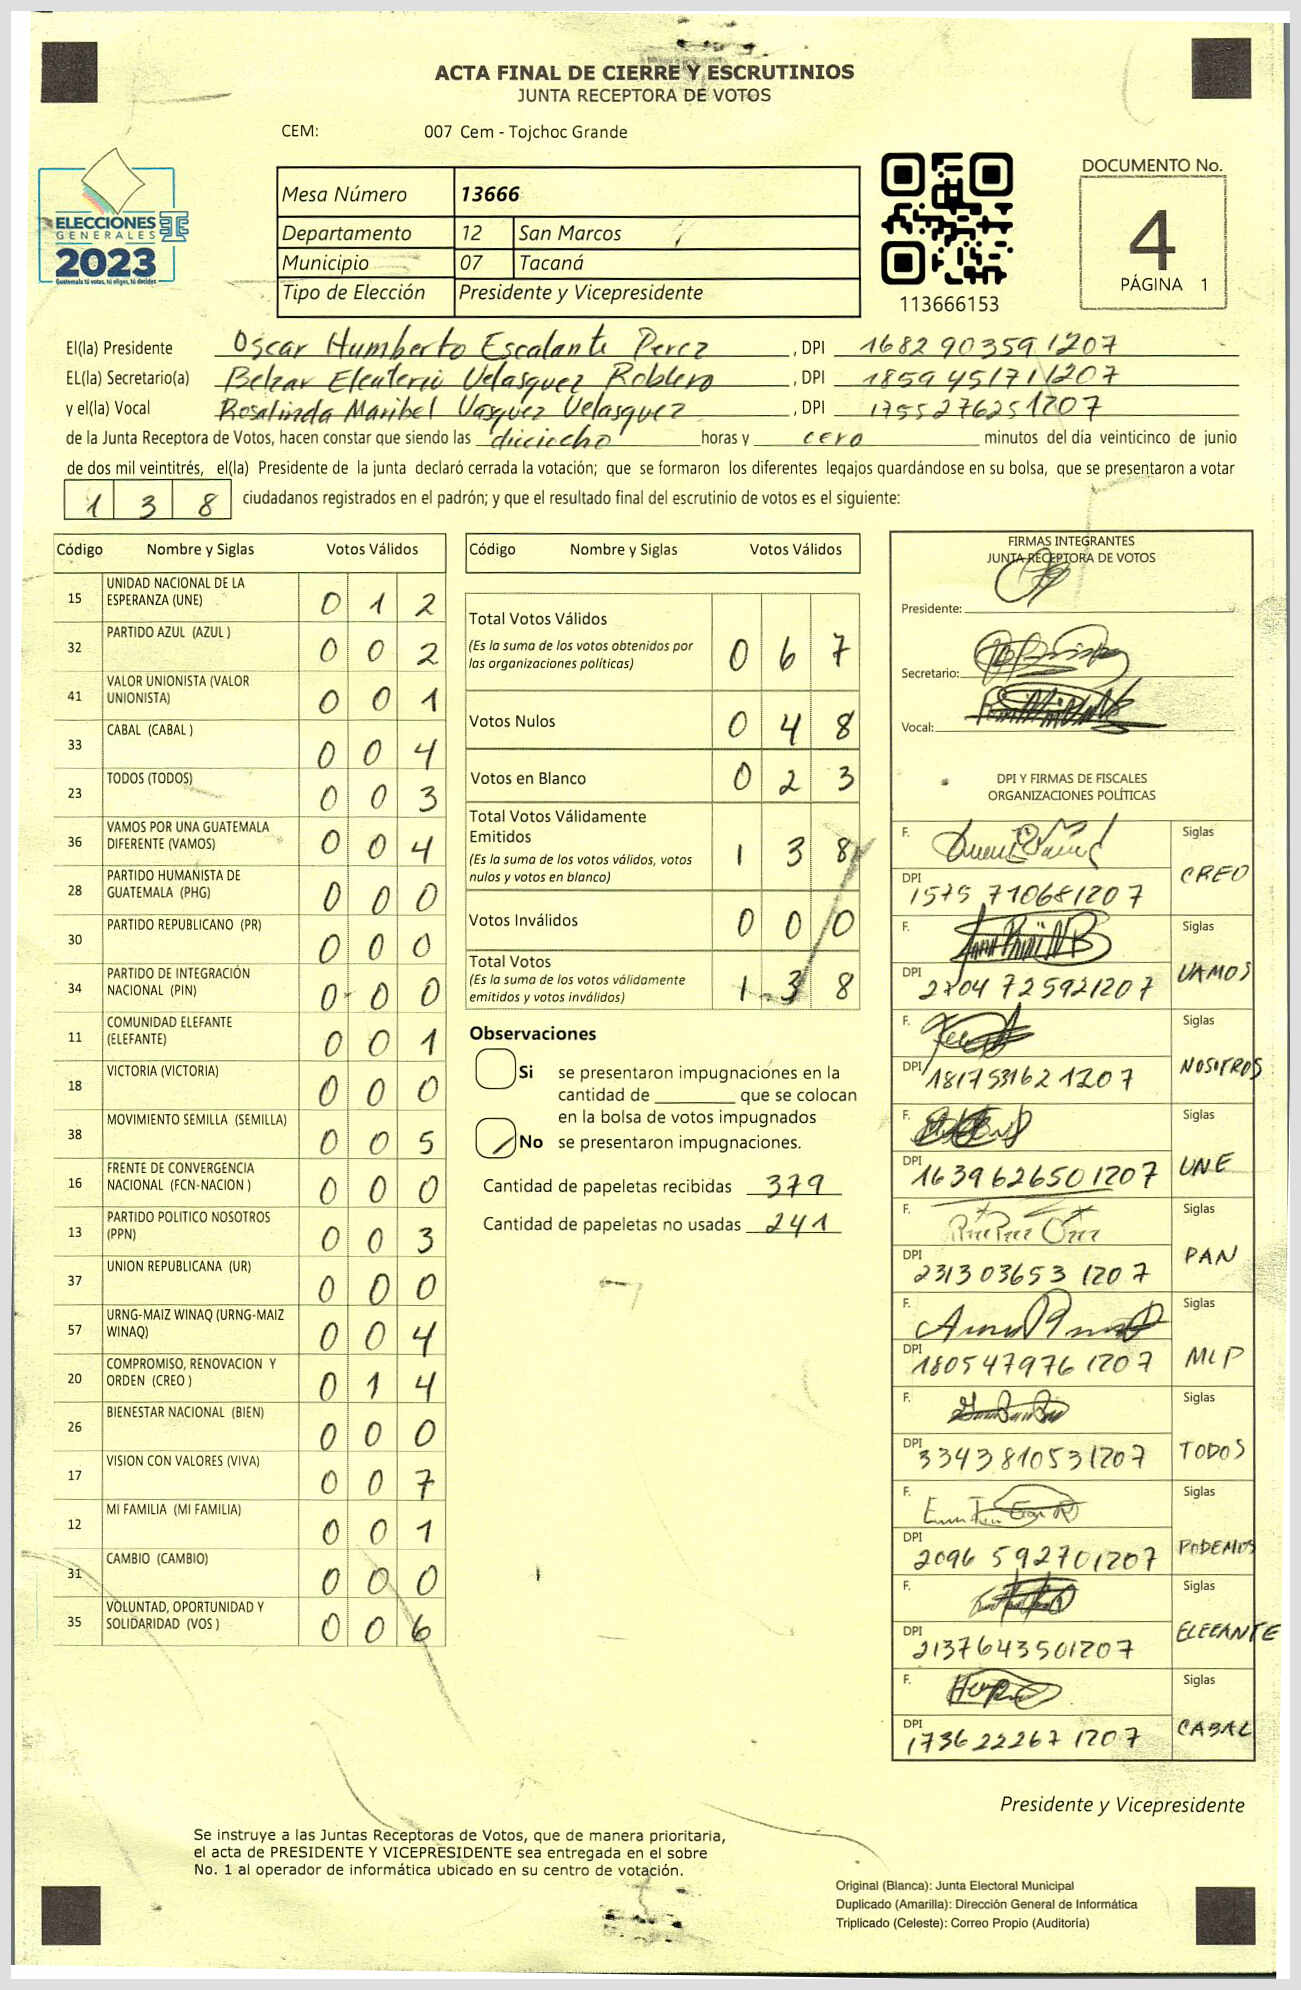 ACTA FINAL DE CIERRE Y ESCRUTINIOS
JUNTA RECEPTORA DE VOTOS
CEM: 007 Cem - Tojchoc Grande
ELECCIONES
GENERALES
2023
Guatemala tú votas, tú eliges, tú decides
Mesa Número 13666
Departamento 12 San Marcos
Municipio 07 Tacaná
Tipo de Elección Presidente y Vicepresidente
113666153
DOCUMENTO No.
4
PÁGINA 1
El(la) Presidente Oscar Humberto Escalante Perez, DPI 1682903591207
EL(la) Secretario(a) Belzar Eleuterio Velasquez Roblero, DPI 1859451711207
y el(la) Vocal Rosalinda Maribel Vasquez Velasquez, DPI 1755276251207
de la Junta Receptora de Votos, hacen constar que siendo las dieciocho horas y cero minutos del día veinticinco de junio
de dos mil veintitrés, el(la) Presidente de la junta declaró cerrada la votación; que se formaron los diferentes legajos quardándose en su bolsa, que se presentaron a votar
1 3 8 ciudadanos registrados en el padrón; y que el resultado final del escrutinio de votos es el siguiente:
Código Nombre y Siglas Votos Válidos
15 UNIDAD NACIONAL DE LA ESPERANZA (UNE) 0 1 2
32 PARTIDO AZUL (AZUL ) 0 0 2
41 VALOR UNIONISTA (VALOR UNIONISTA) 0 0 1
33 CABAL (CABAL ) 0 0 4
23 TODOS (TODOS) 0 0 3
36 VAMOS POR UNA GUATEMALA DIFERENTE (VAMOS) 0 0 4
28 PARTIDO HUMANISTA DE GUATEMALA (PHG) 0 0 0
30 PARTIDO REPUBLICANO (PR) 0 0 0
34 PARTIDO DE INTEGRACIÓN NACIONAL (PIN) 0 0 0
11 COMUNIDAD ELEFANTE (ELEFANTE) 0 0 1
18 VICTORIA (VICTORIA) 0 0 0
38 MOVIMIENTO SEMILLA (SEMILLA) 0 0 5
16 FRENTE DE CONVERGENCIA NACIONAL (FCN-NACION ) 0 0 0
13 PARTIDO POLITICO NOSOTROS (PPN) 0 0 3
37 UNION REPUBLICANA (UR) 0 0 0
57 URNG-MAIZ WINAQ (URNG-MAIZ WINAQ) 0 0 4
20 COMPROMISO, RENOVACION Y ORDEN (CREO ) 0 1 4
26 BIENESTAR NACIONAL (BIEN) 0 0 0
17 VISION CON VALORES (VIVA) 0 0 7
12 MI FAMILIA (MI FAMILIA) 0 0 1
31 CAMBIO (CAMBIO) 0 0 0
35 VOLUNTAD, OPORTUNIDAD Y SOLIDARIDAD (VOS ) 0 0 6
Código Nombre y Siglas Votos Válidos
Total Votos Válidos 0 6 7
(Es la suma de los votos obtenidos por las organizaciones políticas)
Votos Nulos 0 4 8
Votos en Blanco 0 2 3
Total Votos Válidamente Emitidos 1 3 8
(Es la suma de los votos válidos, votos nulos y votos en blanco)
Votos Inválidos 0 0 0
Total Votos 1 3 8
(Es la suma de los votos válidamente emitidos y votos inválidos)
Observaciones
Si se presentaron impugnaciones en la
cantidad de ________ que se colocan
en la bolsa de votos impugnados
No se presentaron impugnaciones.
Cantidad de papeletas recibidas 379
Cantidad de papeletas no usadas 241
FIRMAS INTEGRANTES
JUNTA RECEPTORA DE VOTOS
Presidente:
Secretario:
Vocal:
DPI Y FIRMAS DE FISCALES
ORGANIZACIONES POLÍTICAS
F. Siglas
DPI 1575 710681207 CREO
F. Siglas
DPI 2704 725921207 VAMOS
F. Siglas
DPI 1817531621207 NOSOTROS
F. Siglas
DPI 1639626501207 UNE
F. Siglas
DPI 2313036531207 PAN
F. Siglas
DPI 1805479761207 MLP
F. Siglas
DPI 3343810531207 TODOS
F. Siglas
DPI 2096 592701207 PODEMOS
F. Siglas
DPI 2137643501207 ELEFANTE
F. Siglas
DPI 1736222671207 CABAL
Presidente y Vicepresidente
Se instruye a las Juntas Receptoras de Votos, que de manera prioritaria,
el acta de PRESIDENTE Y VICEPRESIDENTE sea entregada en el sobre
No. 1 al operador de informática ubicado en su centro de votación.
Original (Blanca): Junta Electoral Municipal
Duplicado (Amarilla): Dirección General de Informática
Triplicado (Celeste): Correo Propio (Auditoría)